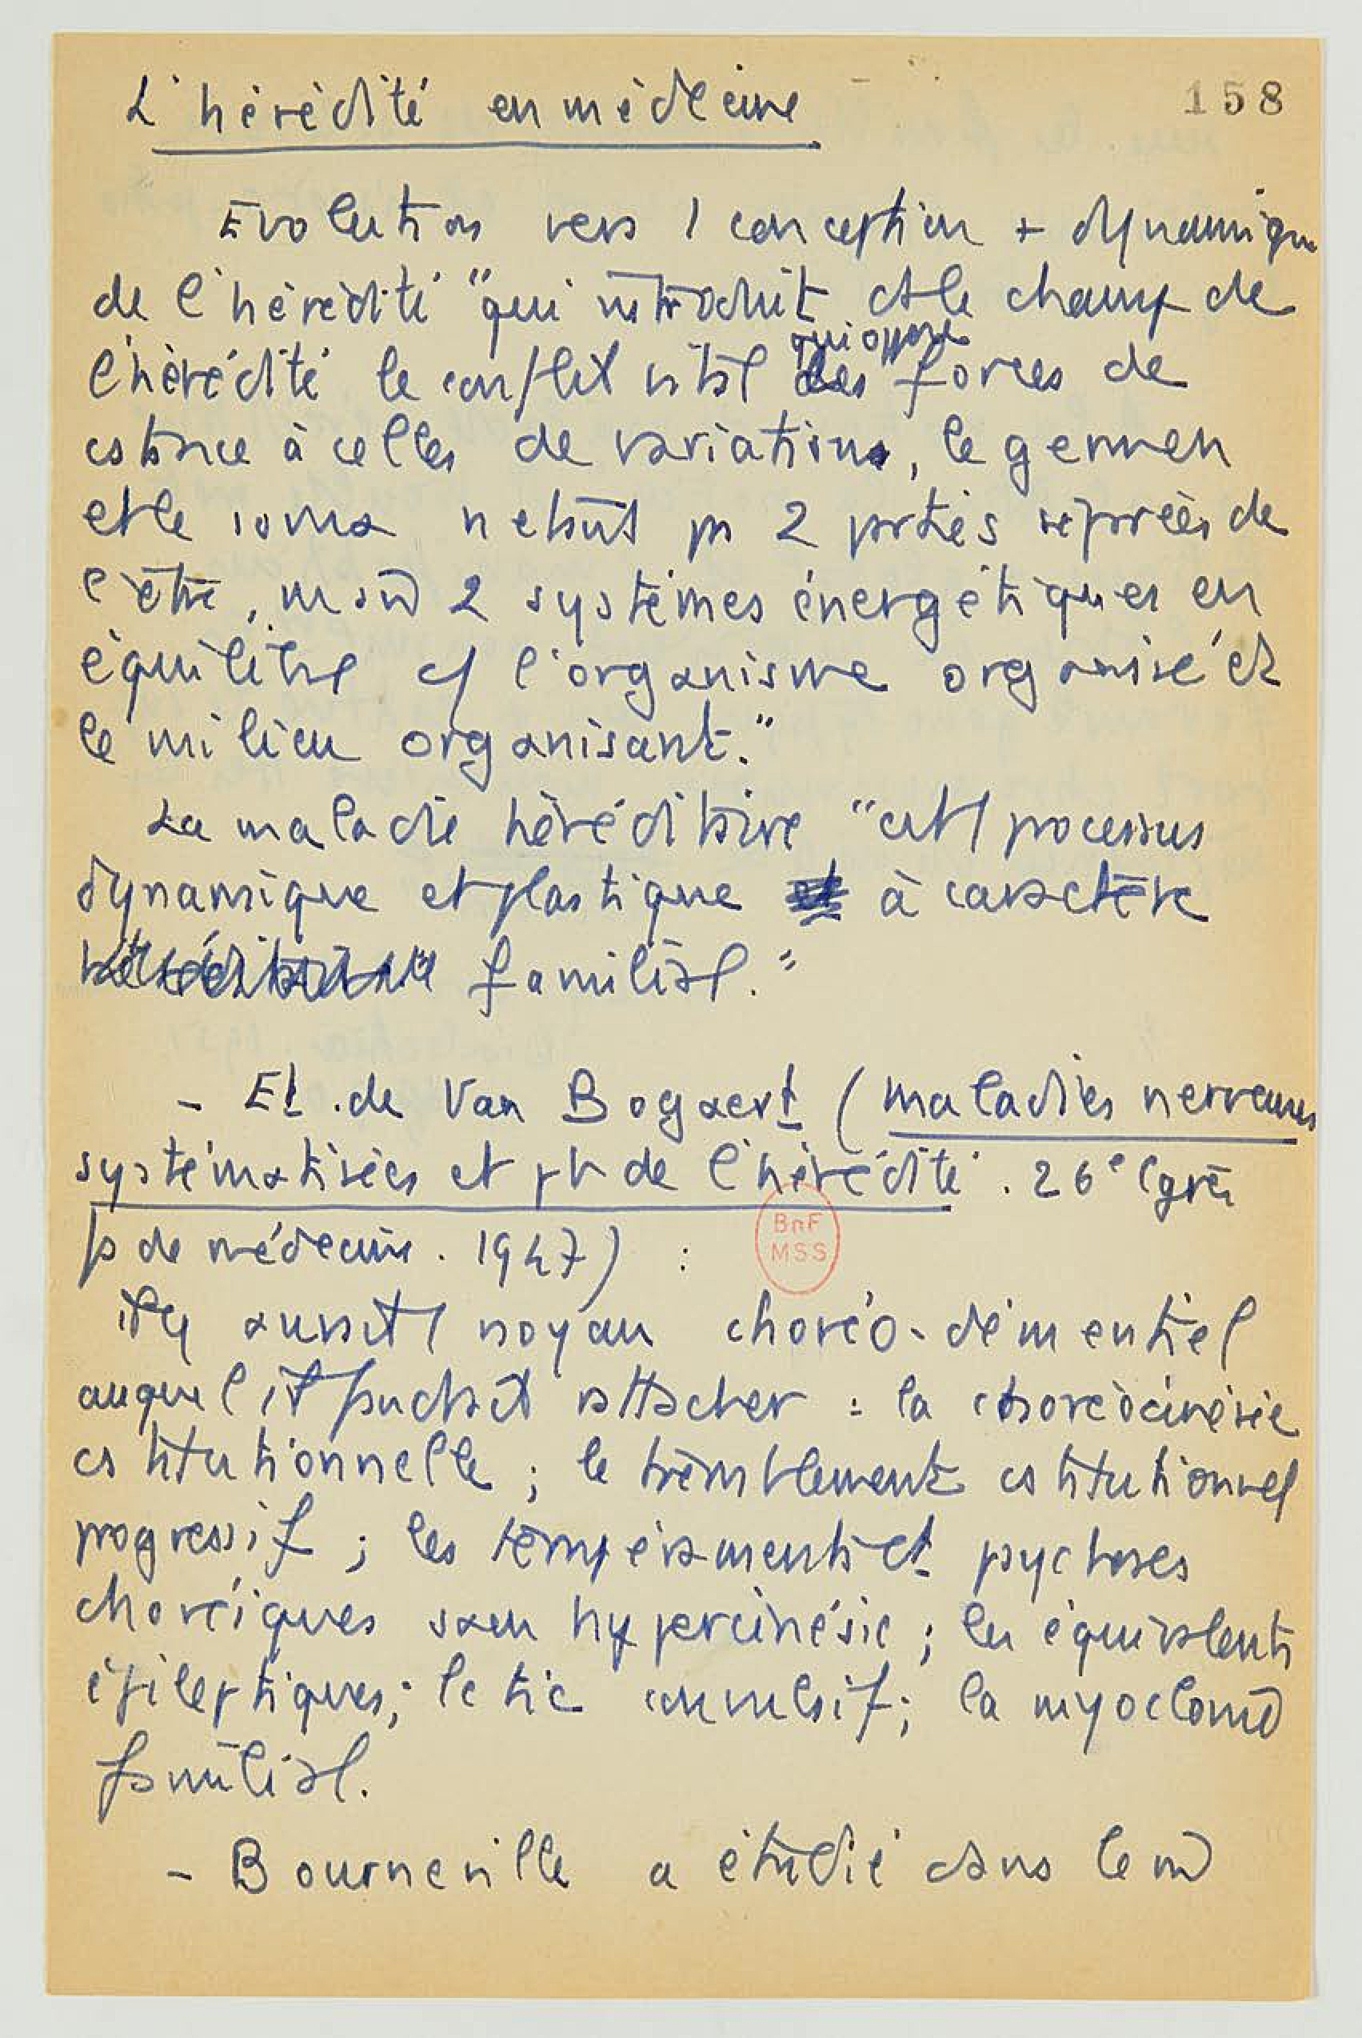 L'hérédité en médecine
158
Evolution vers 1 conception + dynamique
de l'hérédité "qui introduit ds le champ de
qui oppose
l'hérédité le conflit vital les forces de
cstance à celles de variations, le germen
et le soma n'etant ps 2 parties séparées de
l'être, mais 2 systèmes énergétiques en
équilibre cf l'organisme organisé et
le milieu organisant."
La maladie héréditaire "est 1 processus
dynamique et plastique à caractère
familial."
- Et. de Van Bogaert (maladies nerveuses
systématisées et pb de l'hérédité. 26e Cgrès
de médecine. 1947) :
BnF
MSS
il y aurait 1 noyau choréo-démentiel
auquel il faudrait rattacher : la choréocinésie
cstitutionnelle ; le tremblement cstitutionnel
progressif ; les tempéraments et psychoses
choréiques sans hypercinésie ; les équivalents
épileptiques ; le tic convulsif ; la myoclonie
familial.
- Bourneville a étudié dans le m̂